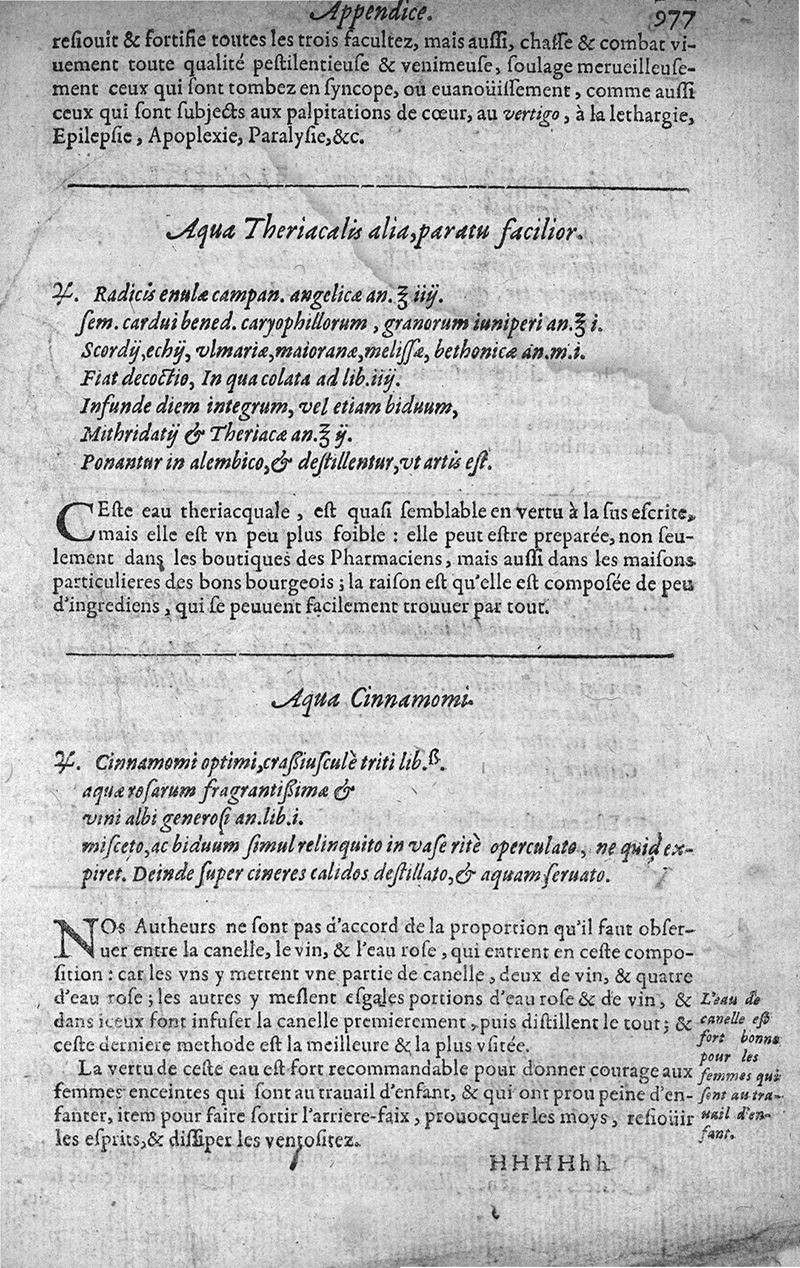 Appendice. 977
resiouit & fortifie toutes les trois facultez, mais aussi, chasse & combat vi-
uement toute qualité pestilentieuse & venimeuse, soulage merueilleuse-
ment ceux qui sont tombez en syncope, ou euanoüissement, comme aussi
ceux qui sont subjects aux palpitations de cœur, au vertigo, à la lethargie,
Epilepsie, Apoplexie, Paralysie, &c.
Aqua Theriacalis alia, paratu facilior.
♃. Radicis enulæ campan. angelicæ an. ℥ iiij.
sem. cardui bened. caryophillorum, granorum iuniperi an. ℥ i.
Scordij, echij, vlmariæ, maioranæ, melissæ, bethonicæ an. m. i.
Fiat decoctio, In qua colata ad lib. iiij.
Infunde diem integrum, vel etiam biduum,
Mithridatij & Theriacæ an. ℥ ij.
Ponantur in alembico, & destillentur, vt artis est.
CEste eau theriacquale, est quasi semblable en vertu à la sus escrite,
mais elle est vn peu plus foible : elle peut estre preparée, non seu-
lement dans les boutiques des Pharmaciens, mais aussi dans les maisons
particulieres des bons bourgeois ; la raison est qu'elle est composée de peu
d'ingrediens, qui se peuuent facilement trouuer par tout.
Aqua Cinnamomi.
♃. Cinnamomi optimi, crassiusculè triti lib. ß.
aquæ rosarum fragrantissimæ &
vini albi generosi an. lib. i.
misceto, ac biduum simul relinquito in vase ritè operculato, ne quid ex-
piret. Deinde super cineres calidos destillato, & aquam seruato.
NOs Autheurs ne sont pas d'accord de la proportion qu'il faut obser-
uer entre la canelle, le vin, & l'eau rose, qui entrent en ceste compo-
sition : car les vns y mettent vne partie de canelle, deux de vin, & quatre
d'eau rose ; les autres y meslent esgales portions d'eau rose & de vin, &
dans iceux font infuser la canelle premierement, puis distillent le tout ; &
ceste derniere methode est la meilleure & la plus vsitée.
La vertu de ceste eau est fort recommandable pour donner courage aux
femmes enceintes qui sont au trauail d'enfant, & qui ont prou peine d'en-
fanter, item pour faire sortir l'arriere-faix, prouocquer les moys, resioüir
les esprits, & dissiper les ventositez.
L'eau de
canelle est
fort bonne
pour les
femmes qui
sont au tra-
uail d'en-
fant.
HHHHhh